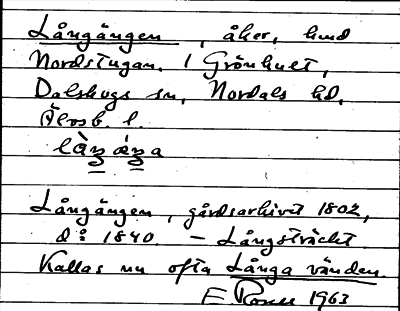 Långängen, åker, hmd
Nordstugan. 1 Grönhult,
Dalskogs sn, Nordals hd,
Älvsb. l.
Långängen, gårdsarkivet 1802,
d:o 1840. – Långsträckt.
Kallas nu ofta Långa vänden.
E 1963